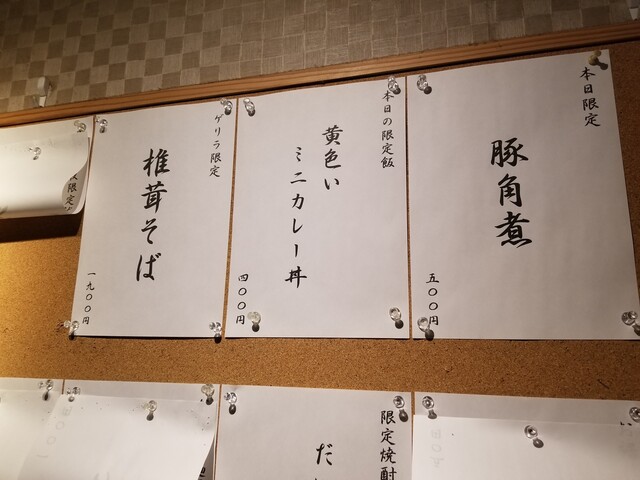 本日限定
豚角煮
五〇〇円
本日の限定飯
黄色い
ミニカレー丼
四〇〇円
ゲリラ限定
椎茸そば
一九〇〇円
限定
限定焼酎
だ